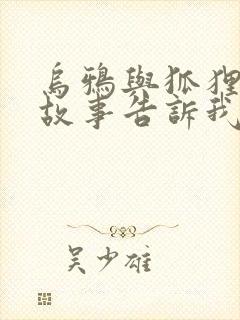 烏鴉與狐狸
故事告訴我
吳少雄